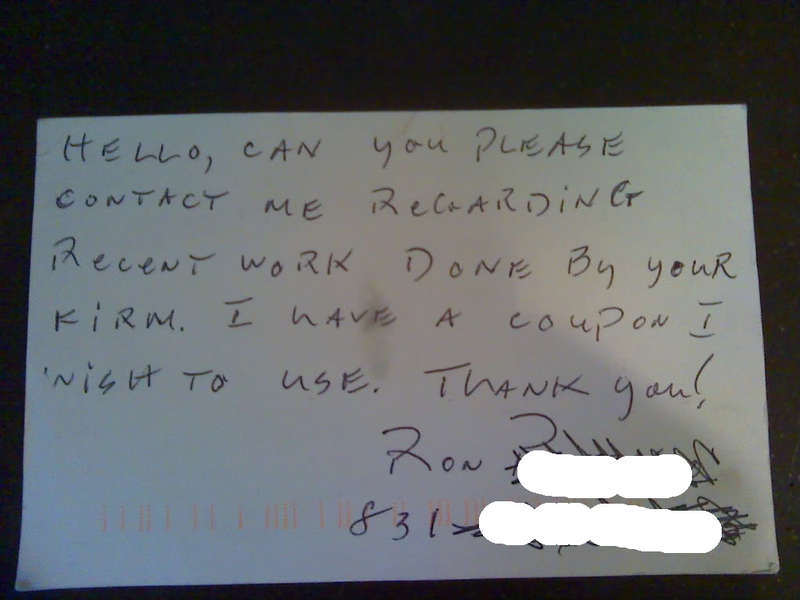 HELLO, CAN you PLEASE
CONTACT ME REGARDING
RECENT WORK DONE By youR
FIRM. I HAVE A COUPON I
WISH TO USE. THANK you!
RON
831-